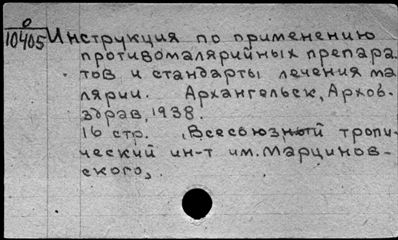 О
10405
Инструкция по применению
противомалярийных препара-
тов и стандарты лечения ма
лярии. Архангельск, Архов-
здрав, 1938.
16 стр. (Всесоюзный тропи-
ческий ин-т им. Марцинов-
ского).